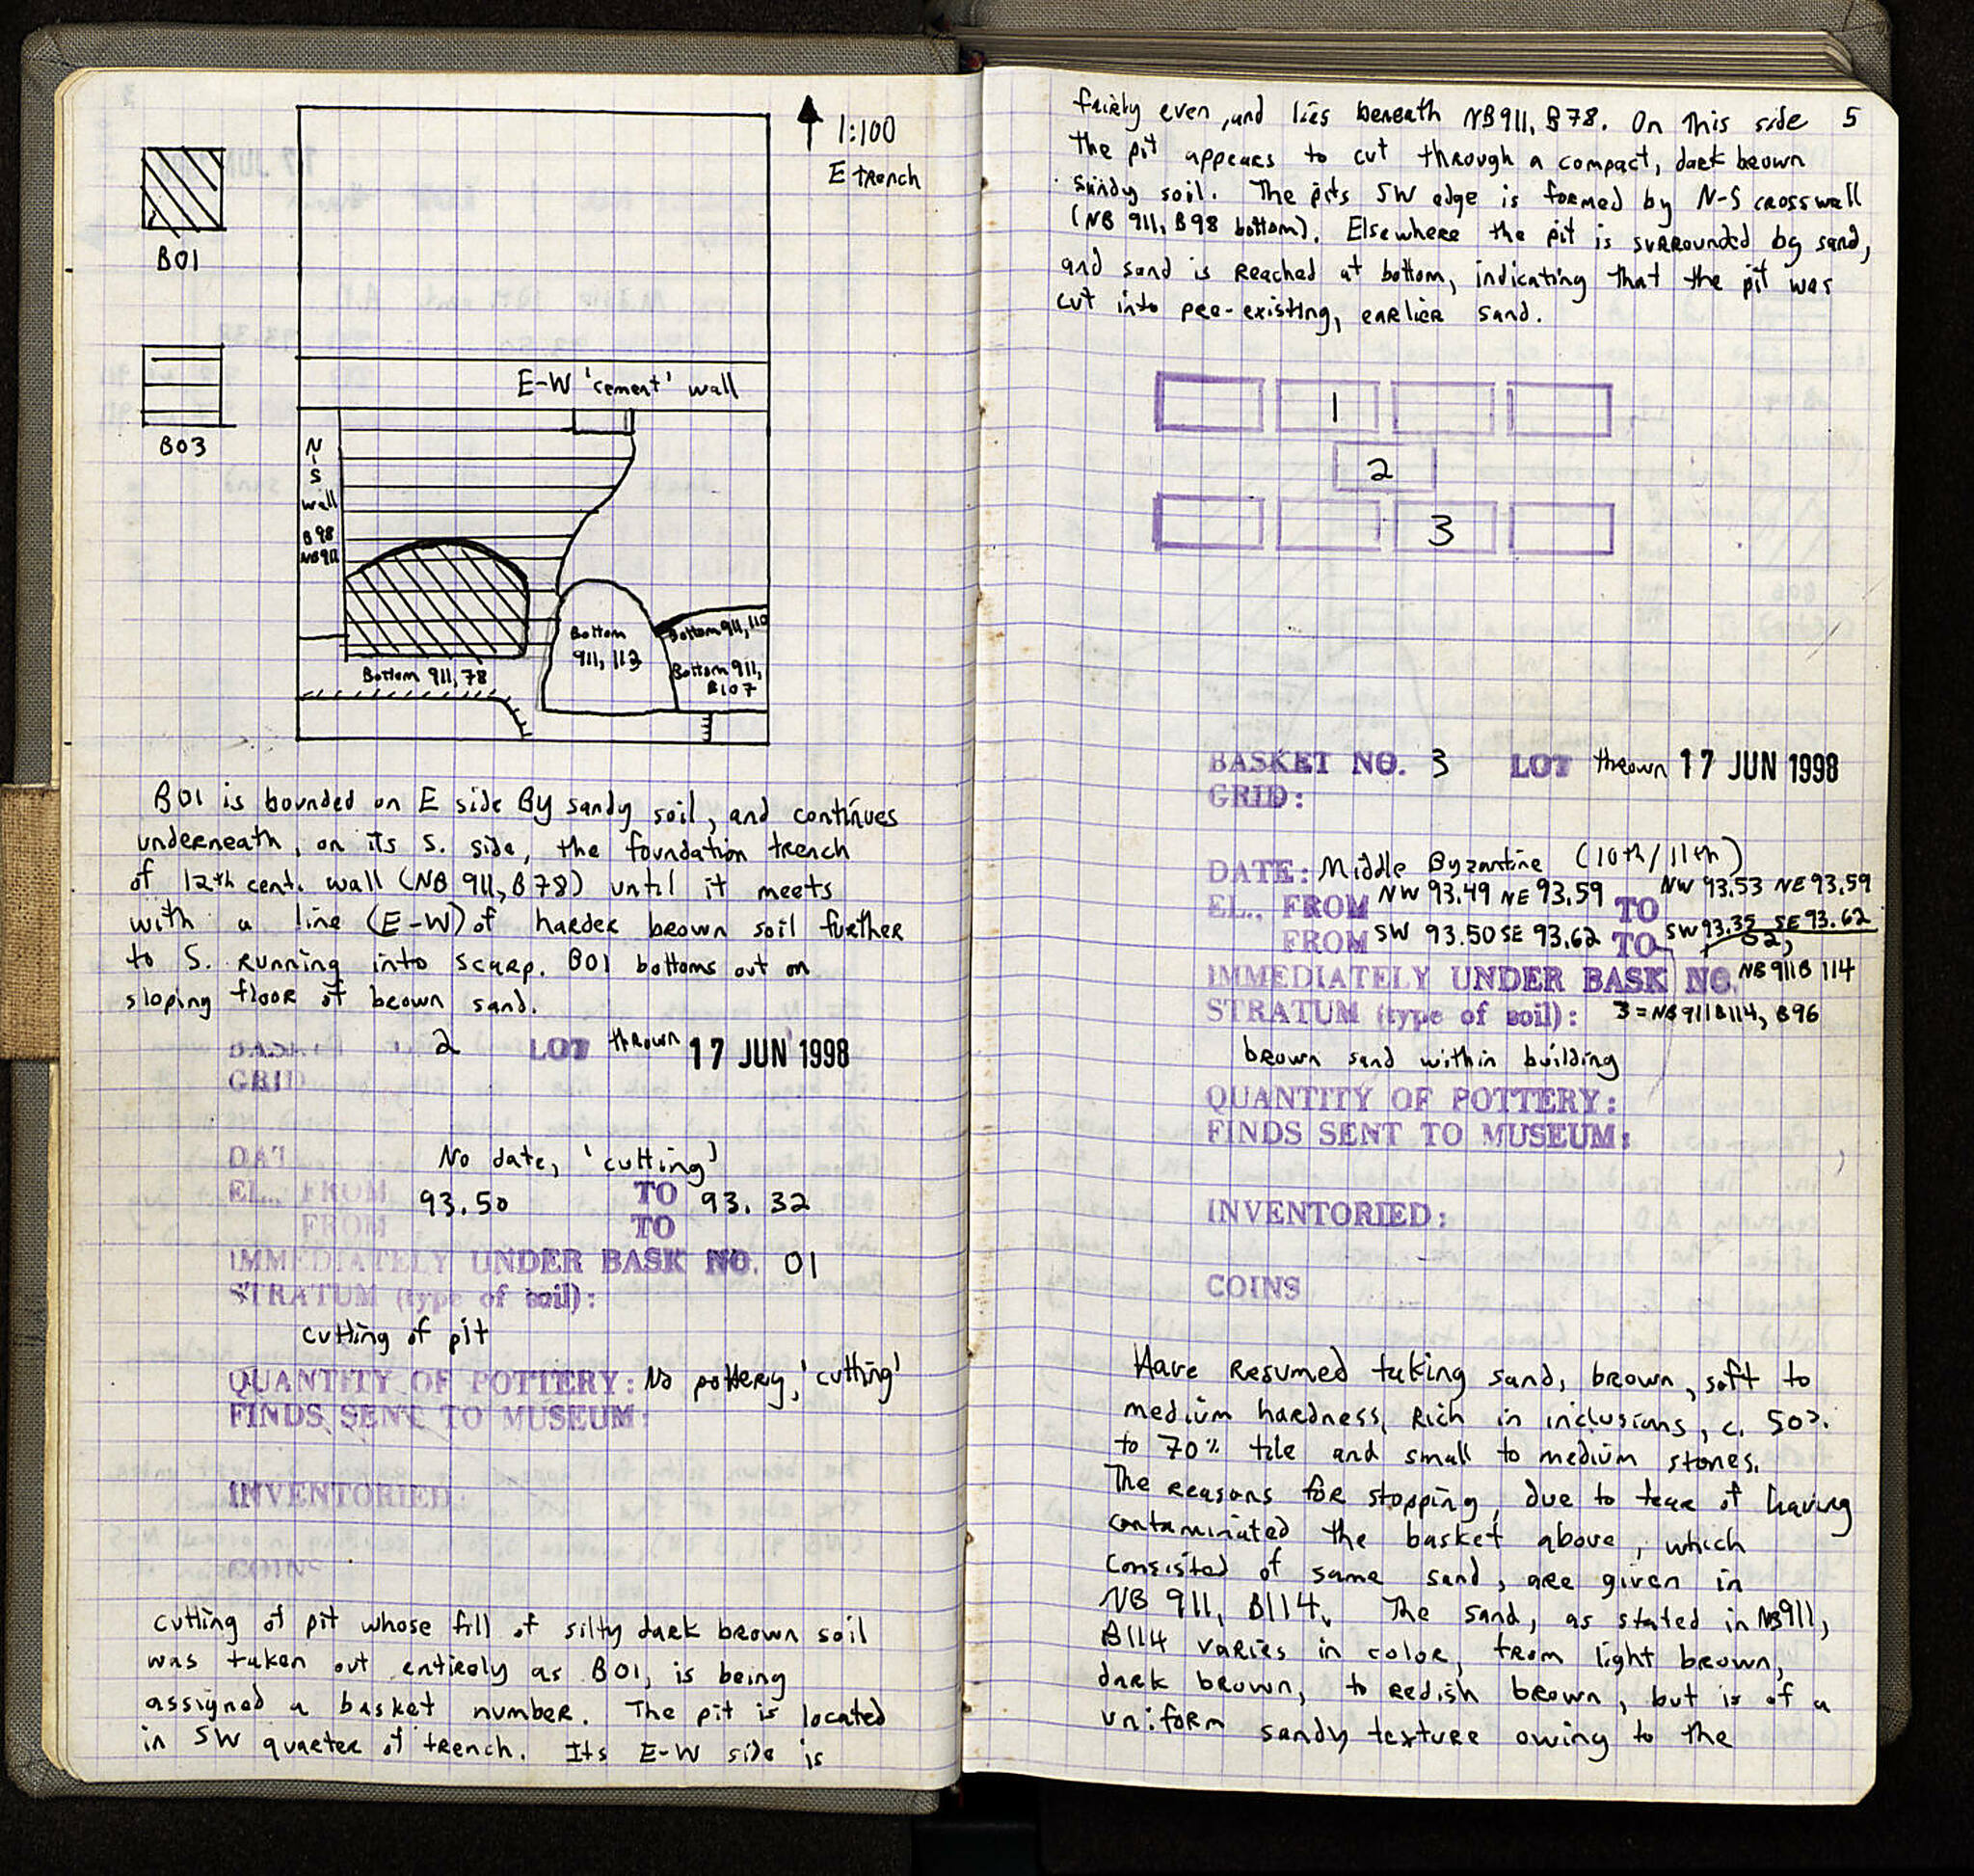 1:100
E trench
B01
B03
E-W 'cement' wall
N
-
S
wall
B98
NB911
Bottom
911, 113
Bottom 911, 110
Bottom 911,
B107
Bottom 911, 78
B01 is bounded on E side By sandy soil, and continues
underneath, on its S. side, the foundation trench
of 12th cent. wall (NB 911, B78) until it meets
with a line (E-W) of harder brown soil further
to S. running into scarp. B01 bottoms out on
sloping floor of brown sand.
2 LOT thrown 17 JUN 1998
GRID
DAT No date, 'cutting'
EL., FROM 93.50 TO 93.32
FROM TO
IMMEDIATELY UNDER BASK NO. 01
STRATUM (type of soil):
cutting of pit
QUANTITY OF POTTERY: No pottery, 'cutting'
FINDS SENT TO MUSEUM:
INVENTORIED:
COINS
cutting of pit whose fill of silty dark brown soil
was taken out entirely as B01, is being
assigned a basket number. The pit is located
in SW quarter of trench. Its E-W side is
fairly even, and lies beneath NB911, B78. On this side 5
the pit appears to cut through a compact, dark brown
sandy soil. The pits SW edge is formed by N-S crosswall
(NB 911, B98 bottom). Elsewhere the pit is surrounded by sand,
and sand is reached at bottom, indicating that the pit was
cut into pre-existing, earlier sand.
1
2
3
BASKET NO. 3 LOT thrown 17 JUN 1998
GRID:
DATE: Middle Byzantine (10th/11th)
EL., FROM NW 93.49 NE 93.59 TO NW 93.53 NE 93.59
FROM SW 93.50 SE 93.62 TO SW 93.35 SE 93.62
52,
IMMEDIATELY UNDER BASK NO. NB911B 114
STRATUM (type of soil): 3=NB911B114, B96
brown sand within building
QUANTITY OF POTTERY:
FINDS SENT TO MUSEUM:
INVENTORIED:
COINS
Have resumed taking sand, brown, soft to
medium hardness, rich in inclusions, c. 50%
to 70% tile and small to medium stones.
The reasons for stopping, due to fear of having
contaminated the basket above, which
consisted of same sand, are given in
NB 911, B114. The sand, as stated in NB911,
B114 varies in color, from light brown,
dark brown, to redish brown, but is of a
uniform sandy texture owing to the